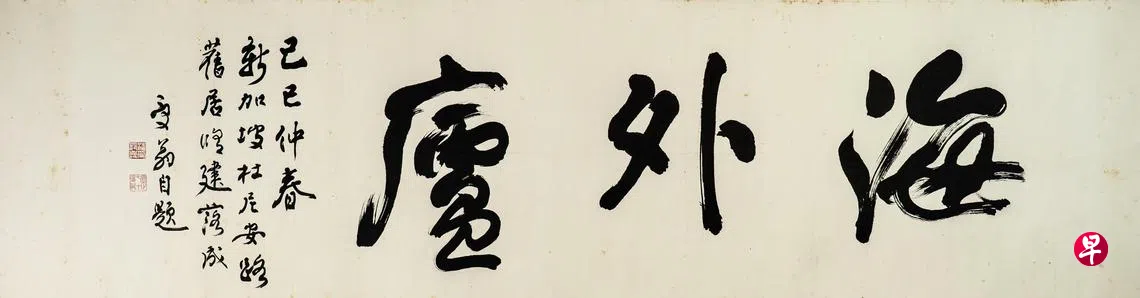 海外廬
己巳仲春
新加坡杜尼安路
舊居修建落成
受翁自題
早